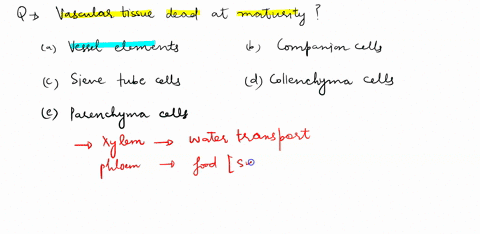 Q→ Vascular tissue dead at maturity?
(a) Vessel elements (b) Companion cells
(c) Sieve tube cells (d) Collenchyma cells
(e) Parenchyma cells
→ Xylem → water transport
phloem → food [s